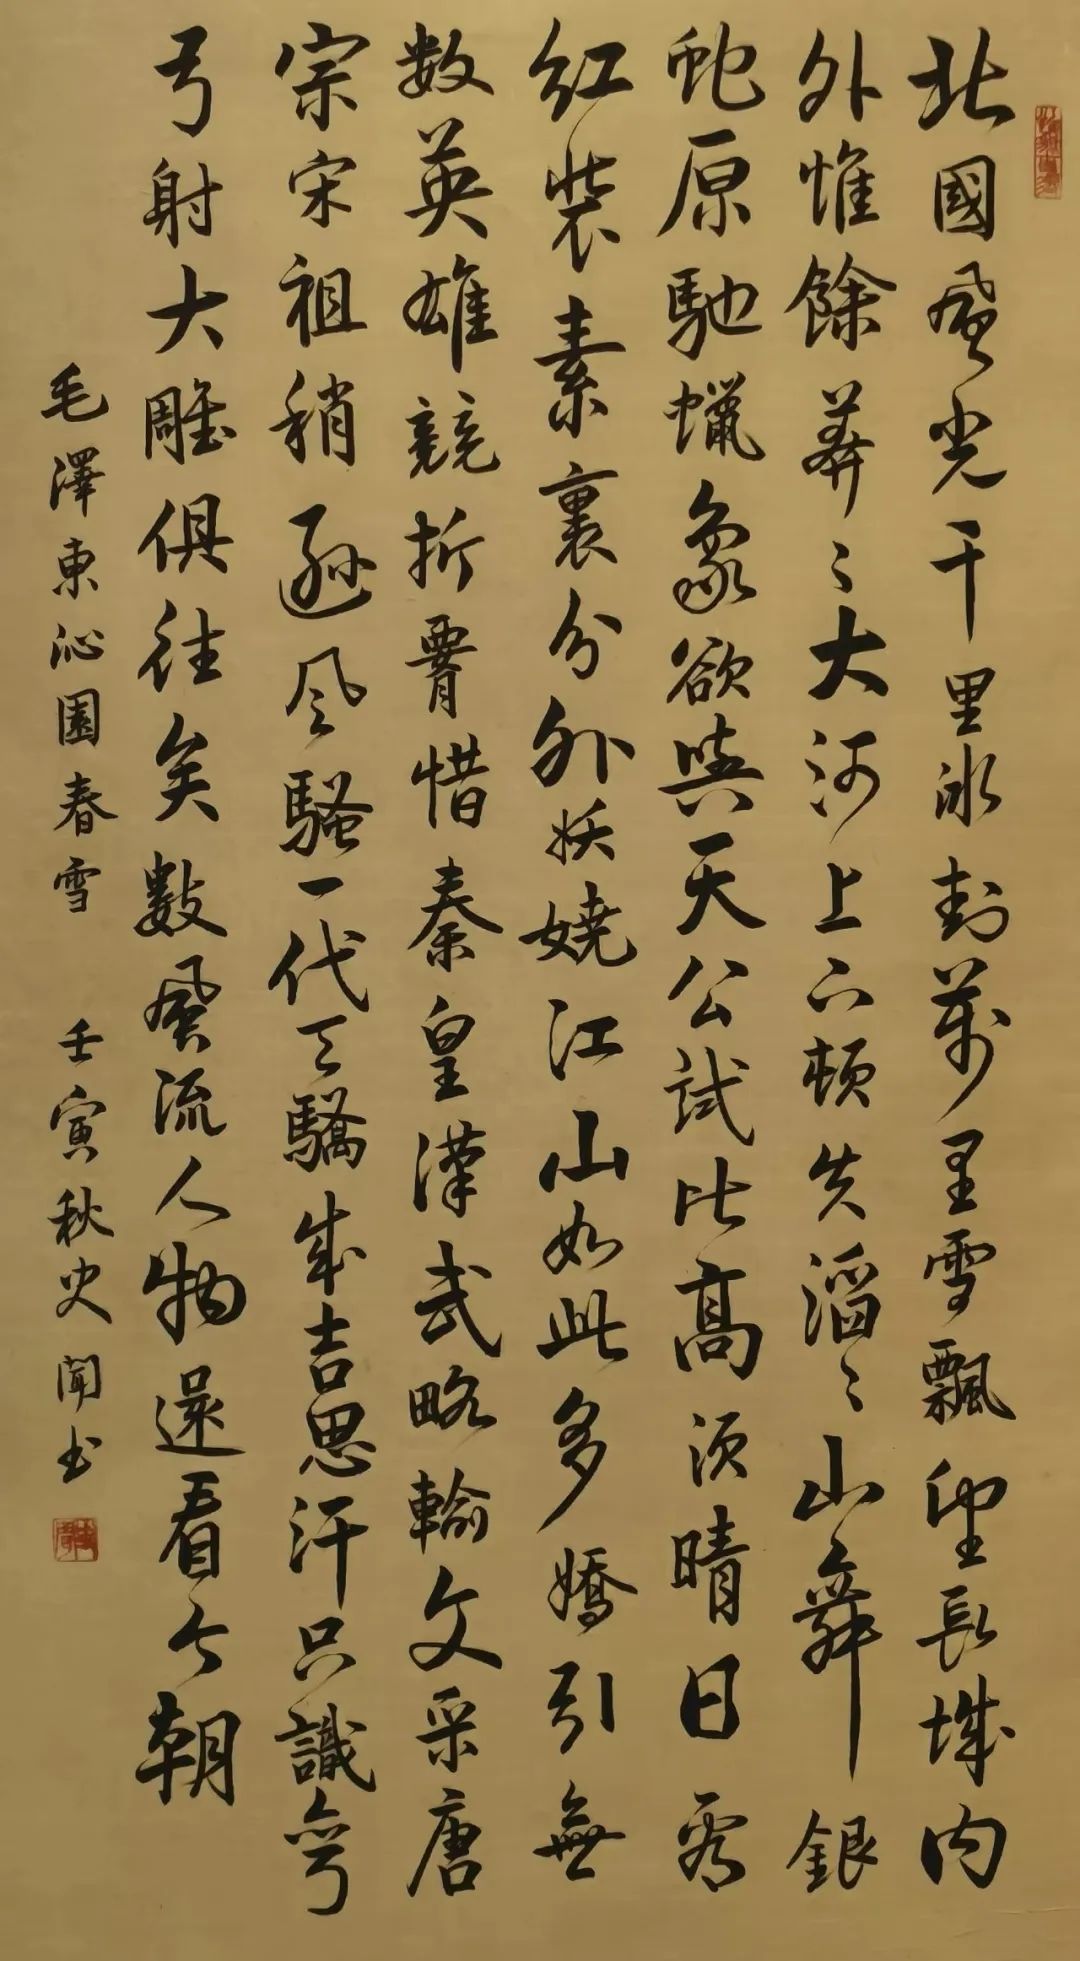 北國風光千里冰封萬里雪飄望長城内
外惟餘莽〻大河上下頓失滔〻山舞銀
蛇原馳蠟象欲與天公試比高須晴日看
紅裝素裹分外妖嬈江山如此多嬌引無
数英雄競折腰惜秦皇漢武略輸文采唐
宗宋祖稍遜风騷一代天驕成吉思汗只識彎
弓射大雕俱往矣數風流人物還看今朝
毛澤東沁園春雪 壬寅秋史聞书